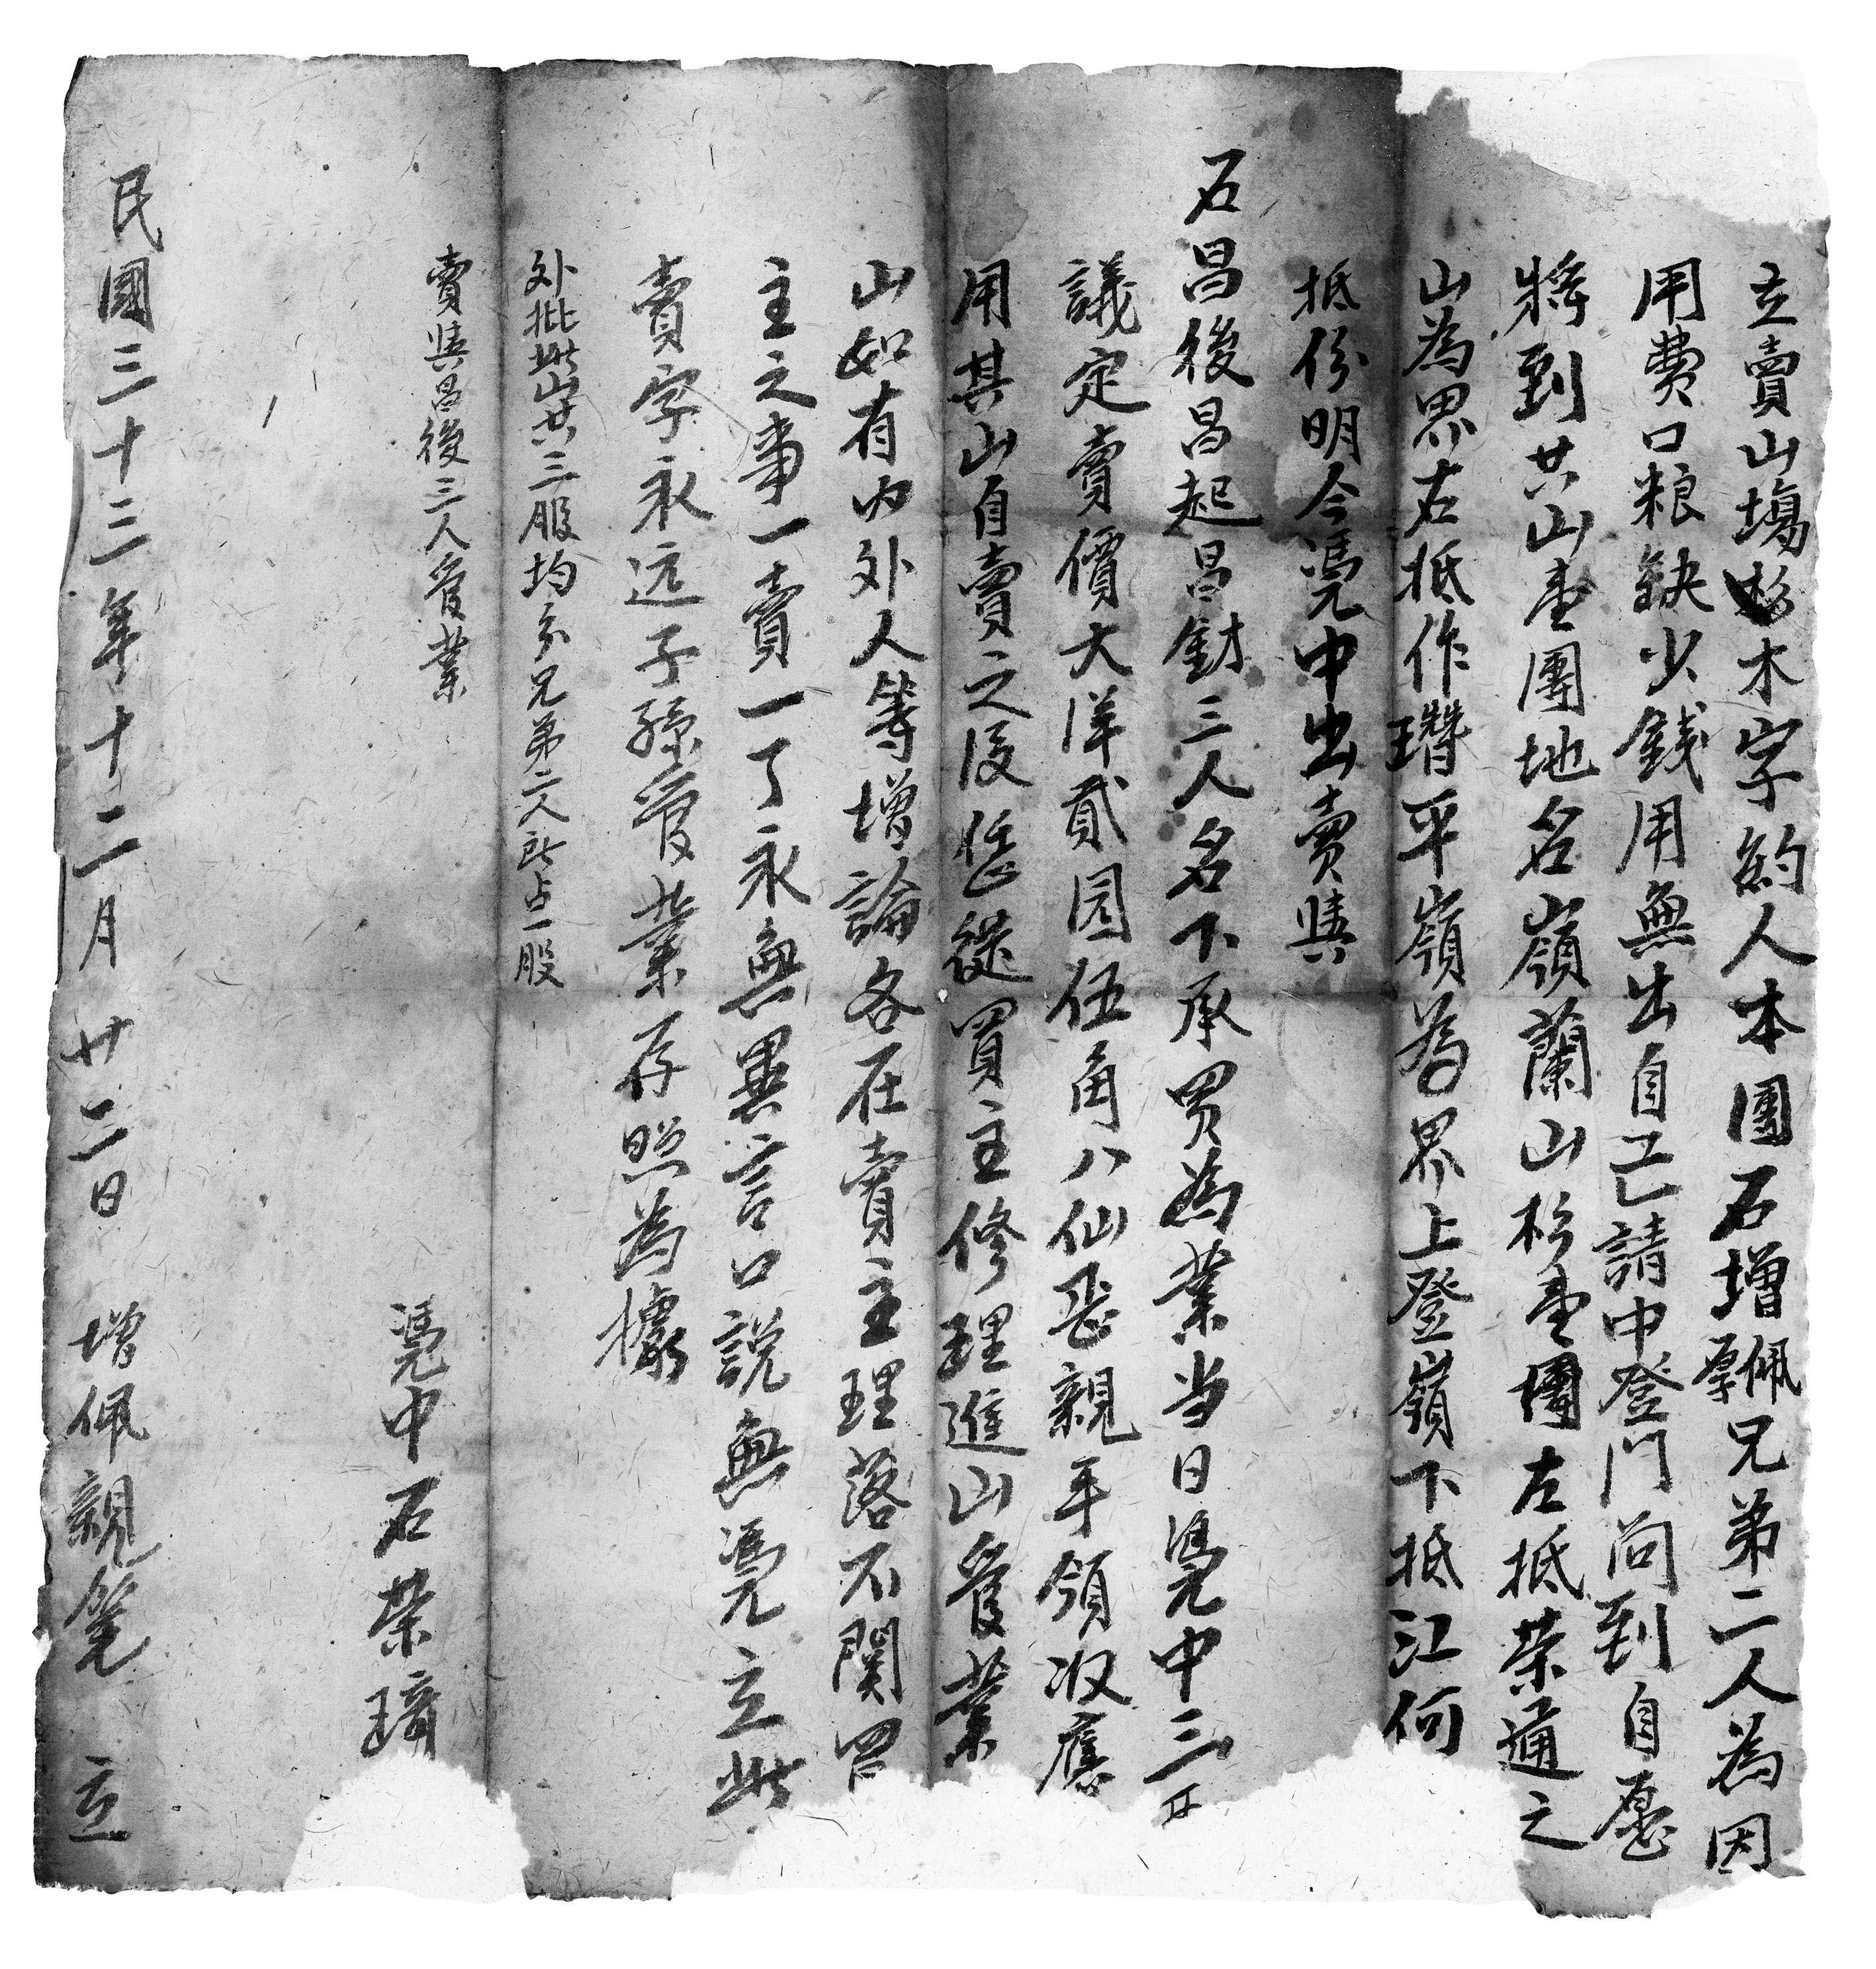 立賣山塲杉木字約人本團石增佩厚兄弟二人為因
用費口粮缺少錢用無出自己請中登門问到自愿
將到共山壹團地名嶺蘭山杉壹團左抵荣通之
山為界右抵作瓚平嶺為界上登嶺下抵江何
抵份明今馮中出賣與
石昌後昌起昌財三人名下承買為業当日馮中三面
議定賣價大洋貳园伍角八仙㤙親手領收應
用其山自賣之後恁從買主修理進山管業
山如有内外人等增論各在賣主理落不関買
主之事一賣一了永無異言口說無馮立此
賣字永远子孫管業存照為據
外批此山共三股均分兄弟二人所占一股
賣與昌後三人管業
馮中石荣璋
民國三十三年十二月廿二日 增佩親筆 立